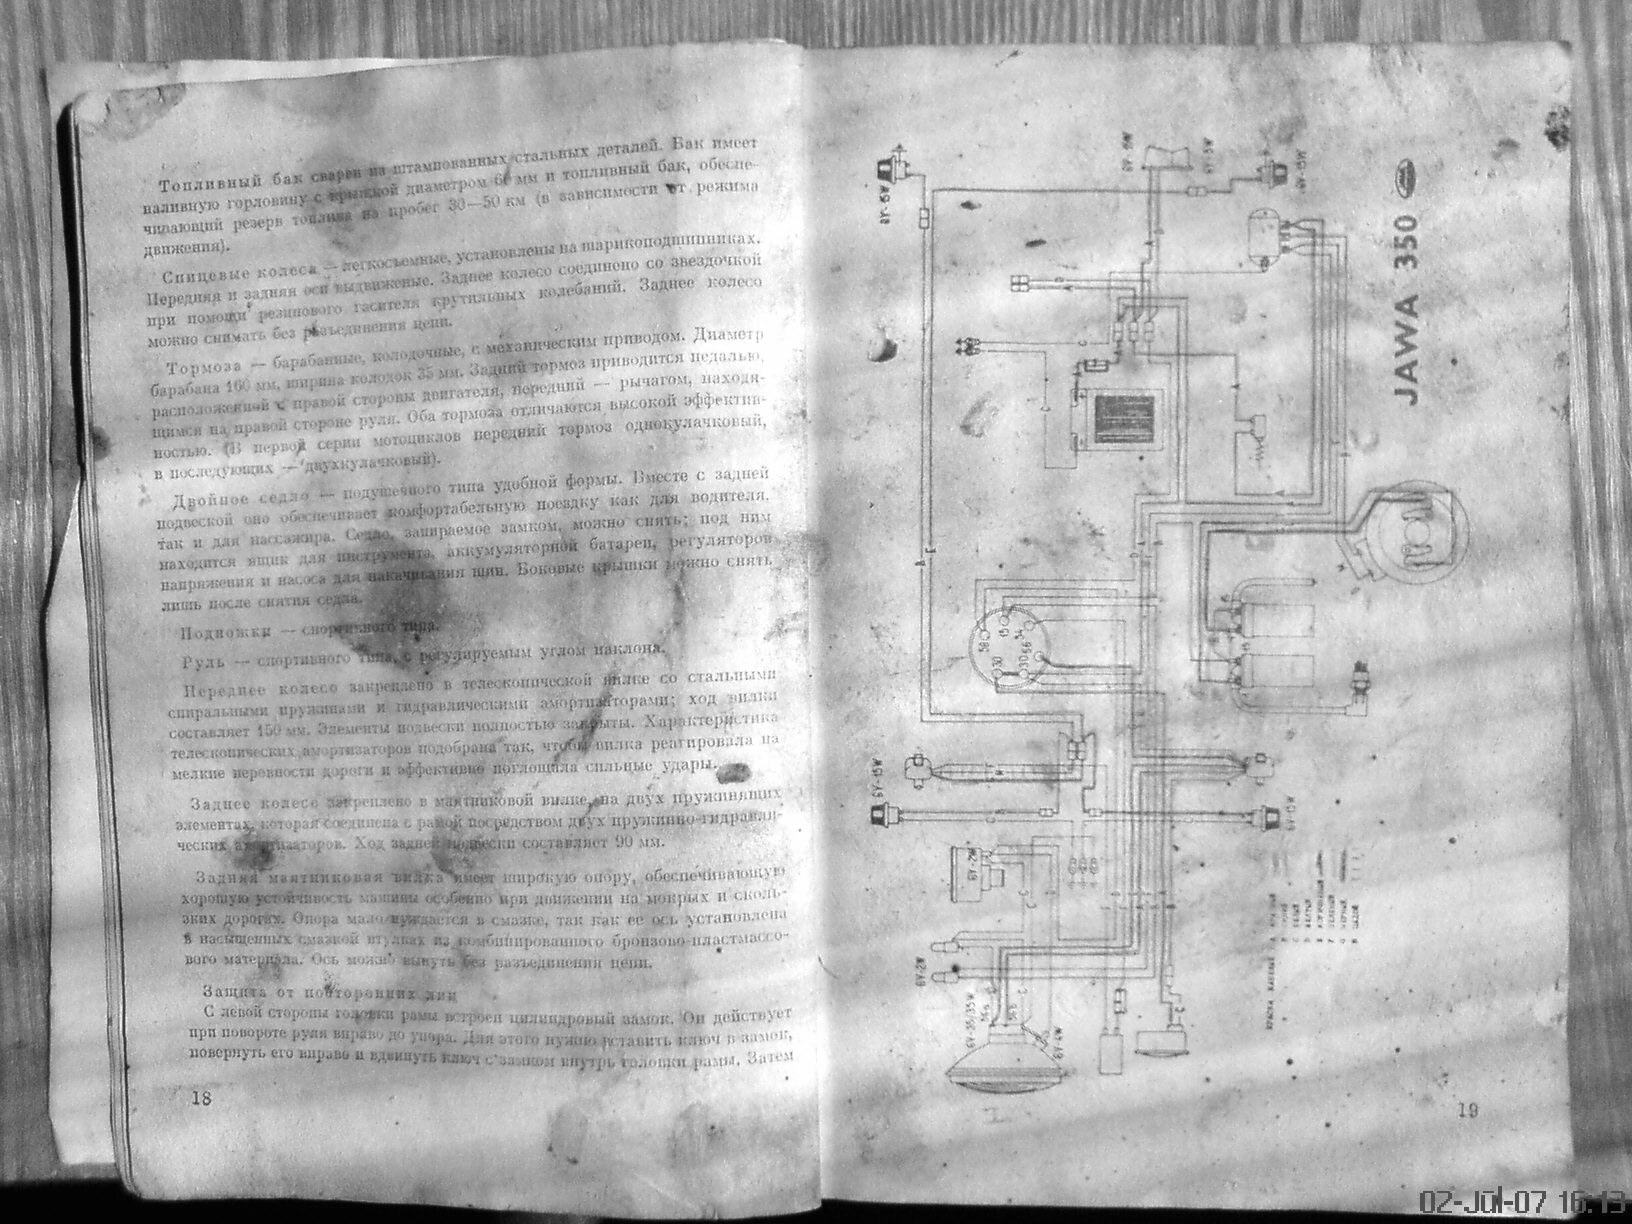 Топливный бак сварен из штампованных стальных деталей. Бак имеет
наливную горловину с крышкой диаметром 60 мм и топливный бак, обеспе-
чивающий резерв топлива на пробег 30—50 км (в зависимости от режима
движения).
Спицевые колеса — легкосъемные, установлены на шарикоподшипниках.
Передняя и задняя оси выдвижные. Заднее колесо соединено со звездочкой
при помощи резинового гасителя крутильных колебаний. Заднее колесо
можно снимать без разъединения цепи.
Тормоза — барабанные, колодочные, с механическим приводом. Диаметр
барабана 160 мм, ширина колодок 35 мм. Задний тормоз приводится педалью,
расположенной с правой стороны двигателя, передний — рычагом, находя-
щимся на правой стороне руля. Оба тормоза отличаются высокой эффектив-
ностью. (В первой серии мотоциклов передний тормоз однокулачковый,
в последующих — двухкулачковый).
Двойное седло — подушечного типа удобной формы. Вместе с задней
подвеской оно обеспечивает комфортабельную поездку как для водителя,
так и для пассажира. Седло, запираемое замком, можно снять; под ним
находится ящик для инструмента, аккумуляторной батареи, регуляторов
напряжения и насоса для накачивания шин. Боковые крышки можно снять
лишь после снятия седла.
Подножки — спортивного типа.
Руль — спортивного типа, с регулируемым углом наклона.
Переднее колесо закреплено в телескопической вилке со стальными
спиральными пружинами и гидравлическими амортизаторами; ход вилки
составляет 150 мм. Элементы подвески полностью закрыты. Характеристика
телескопических амортизаторов подобрана так, чтобы вилка реагировала на
мелкие неровности дороги и эффективно поглощала сильные удары.
Заднее колесо закреплено в маятниковой вилке, на двух пружинящих
элементах, которая соединена с рамой посредством двух пружинно-гидравли-
ческих амортизаторов. Ход задней подвески составляет 90 мм.
Задняя маятниковая вилка имеет широкую опору, обеспечивающую
хорошую устойчивость машины особенно при движении на мокрых и сколь-
зких дорогах. Опора мало нуждается в смазке, так как ее ось установлена
в насыщенных смазкой втулках из комбинированного бронзово-пластмассо-
вого материала. Ось можно вынуть без разъединения цепи.
Защита от посторонних лиц
С левой стороны головки рамы встроен цилиндровый замок. Он действует
при повороте руля вправо до упора. Для этого нужно вставить ключ в замок,
повернуть его вправо и вдвинуть ключ с замком внутрь головки рамы. Затем
18
JAWA 350
6V-15W
6V-5W
6V-15W
6V-15W
6V-15W
6V-2W
6V-2W
6V-35/35W
6V-4W
56a
56b
58
15
54
56
30
30
19
02-Jul-07 16:13